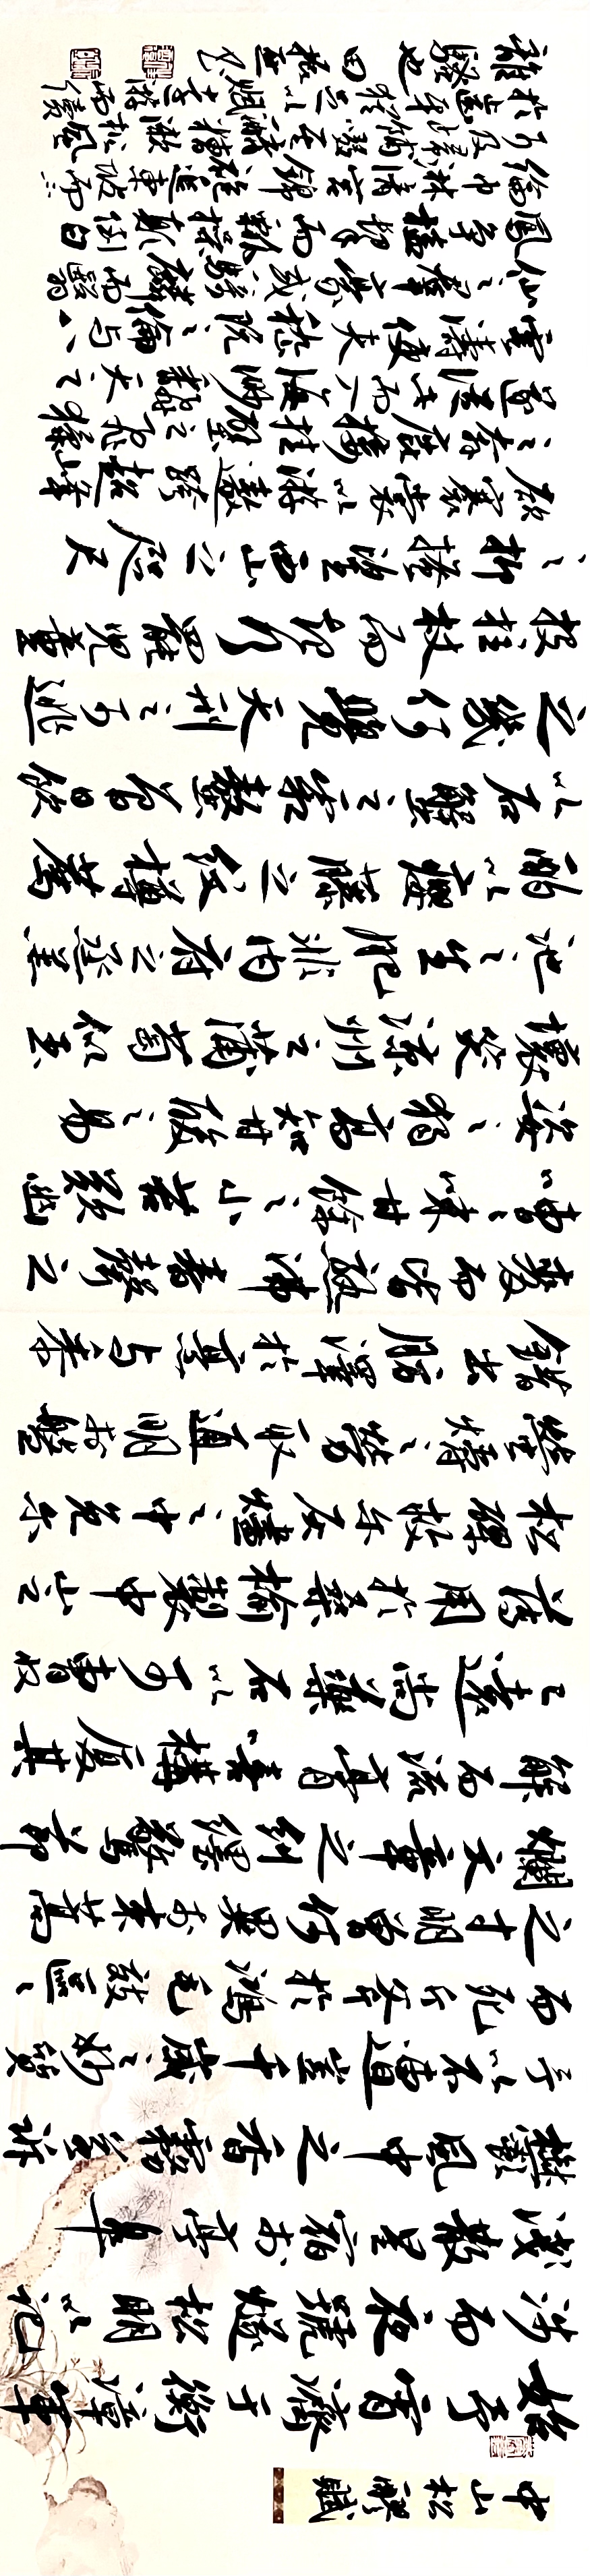 中山松醪賦
始予宵濟于衡漳車
涉而夜號燧松明以記
淺散星宿於亭皋
鬱風中之香霧若訴
予以不遭豈千歲之妙質
而死斤斧於鴻毛效區區
之寸明曾何異於束蒿
爛文章之糾纆驚節
解而流膏嘻構廈其
已遠尚藥石以可曹收
薄用於桑榆製中山之
松醪救爾灰燼之中免爾
螢爝之勞取通明於盤
錯出肪澤於烹與黍
麥而皆熟沸舂聲之
嘈嘈味甘餘之小苦歎幽
姿之獨高知甘酸之易
壞笑涼州之蒲萄似玉
池之生肥非內府之烝羔
酌以癭藤之紋樽薦
以石蟹之霜螯曾日飲
之幾何覺天刑之可逃
投拄杖而起行罷兒童
之抑搔望西山之咫尺
欲褰裳以游遨跨超峰
之奔鹿接挂壁之飛猱
遂從此而入海渺翻天之
雲濤使夫嵇阮之倫與八
仙之羣豪或騎麟而翳
鳳爭榼挈而瓢操顛倒白
綸巾淋漓宮錦袍追東坡而
不可及歸餔歠其醨糟漱松風
於齒牙猶足以賦遠游而續
離騷也 田